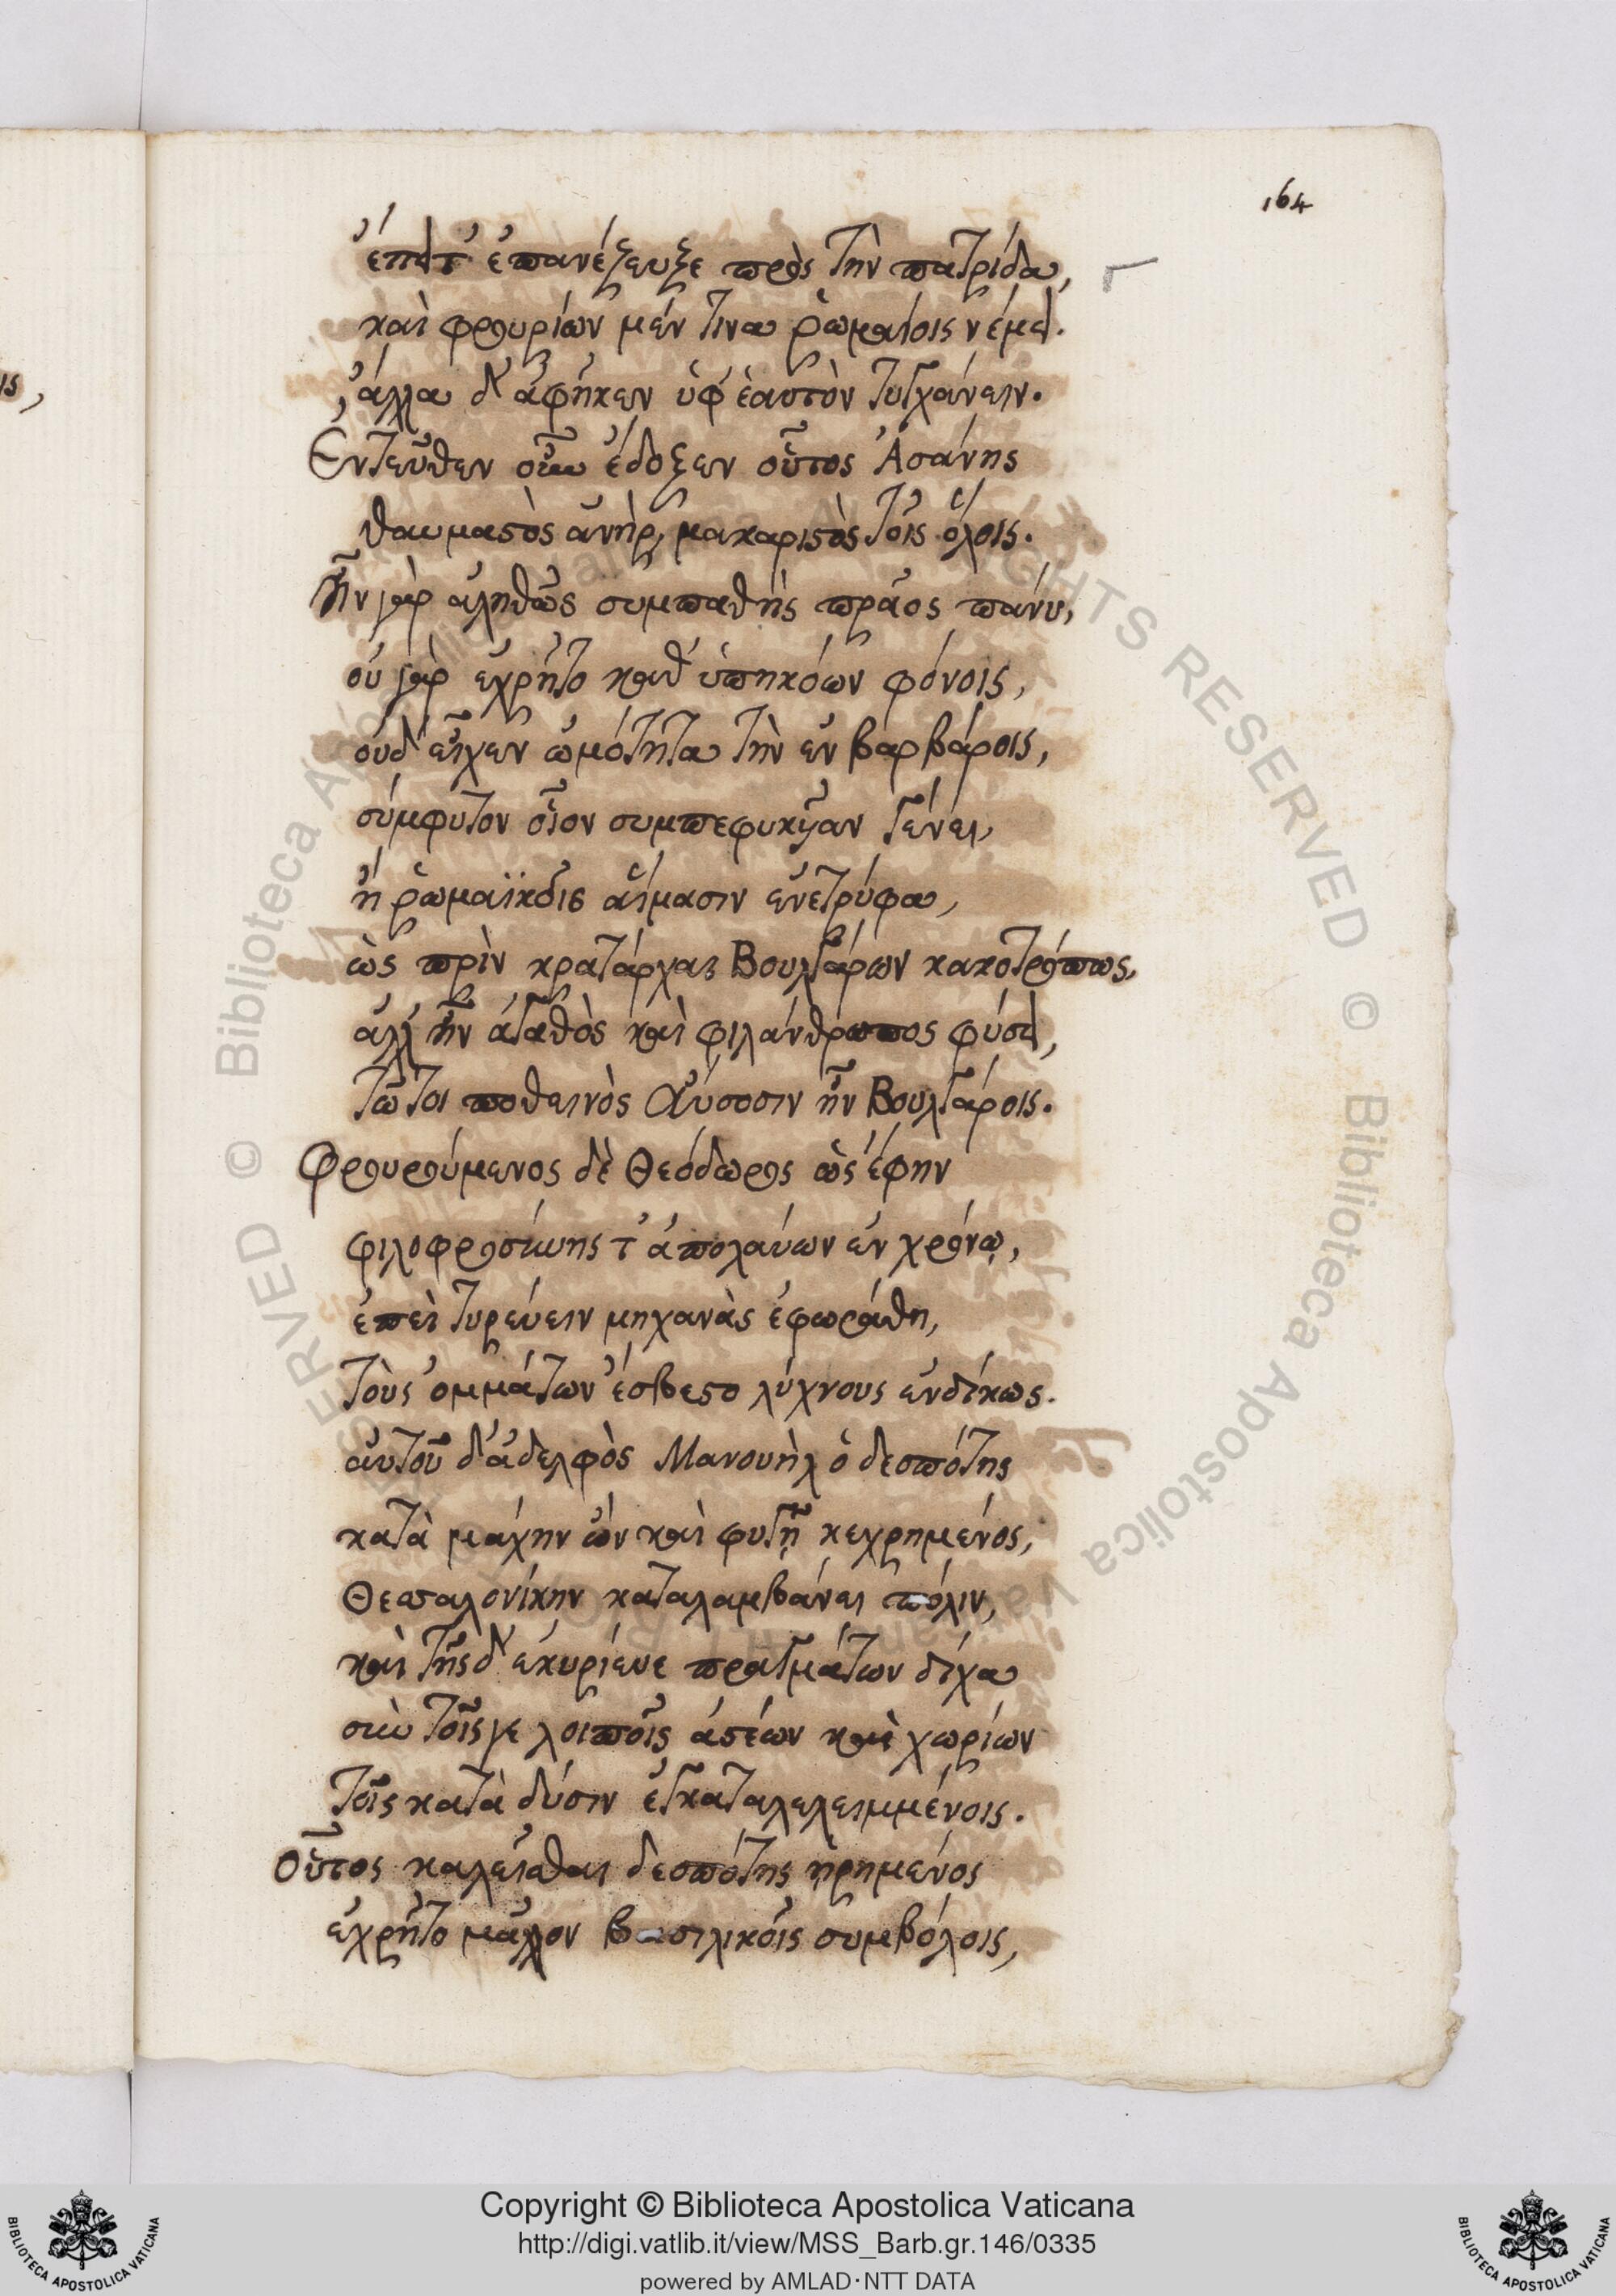 164
ἔπειτ' ἐπανέζευξε πρὸς τὴν πατρίδα,
καὶ φρουρίων μέν τινα ῥωμαίοις νέμει.
ἄλλα δ' ἀφῆκεν ὑφ' ἑαυτὸν τυγχάνειν.
Ἐντεῦθεν οὖν ἔδοξεν οὗτος Ἀσάνης
θαυμαστὸς ἀνὴρ, μακαριστὸς τοῖς ὅλοις.
Ἦν γὰρ ἀληθῶς συμπαθὴς πρᾶος πάνυ,
οὐ γὰρ ἐχρῆτο καθ' ὑπηκόων φόνοις,
οὐδ' εἶχεν ὠμότητα τὴν ἐν βαρβάροις,
σύμφυτον οἷον συμπεφυκυῖαν γένει,
ἢ ῥωμαϊκοῖς αἵμασιν ἐνετρύφα,
ὡς πρὶν κρατάρχαι Βουλγάρων κακοτρόπως,
ἀλλ' ἦν ἀγαθὸς καὶ φιλάνθρωπος φύσει,
τῶ τοι ποθεινὸς Αὔσοσιν ἦν Βουλγάροις.
Φρουρούμενος δὲ Θεόδωρος ὡς ἔφην
φιλοφροσύνης τ' ἀπολαύων ἐν χρόνῳ,
ἐπεὶ τυρεύειν μηχανὰς ἐφωράθη,
τοὺς ὀμμάτων ἔσβεστο λύχνους ἐνδίκως.
αὐτοῦ δ' ἀδελφὸς Μανουὴλ ὁ δεσπότης
κατὰ μάχην ὢν καὶ φυγῇ κεχρημένος,
Θεσσαλονίκην καταλαμβάνει πόλιν,
καὶ τῆσδ' ἐκυρίευε πραγμάτων δίχα
σὺν τοῖς γε λοιποῖς ἀστέων καὶ χωρίων
τοῖς κατὰ δύσιν ἐγκαταλελειμμένοις.
Οὗτος καλεῖσθαι δεσπότης ᾑρημένος
ἐχρῆτο μᾶλλον βασιλικοῖς συμβόλοις,
ις,
© Biblioteca Apostolica Vaticana
ALL RIGHTS RESERVED
Copyright © Biblioteca Apostolica Vaticana
http://digi.vatlib.it/view/MSS_Barb.gr.146/0335
powered by AMLAD·NTT DATA
BIBLIOTECA APOSTOLICA VATICANA
BIBLIOTECA APOSTOLICA VATICANA